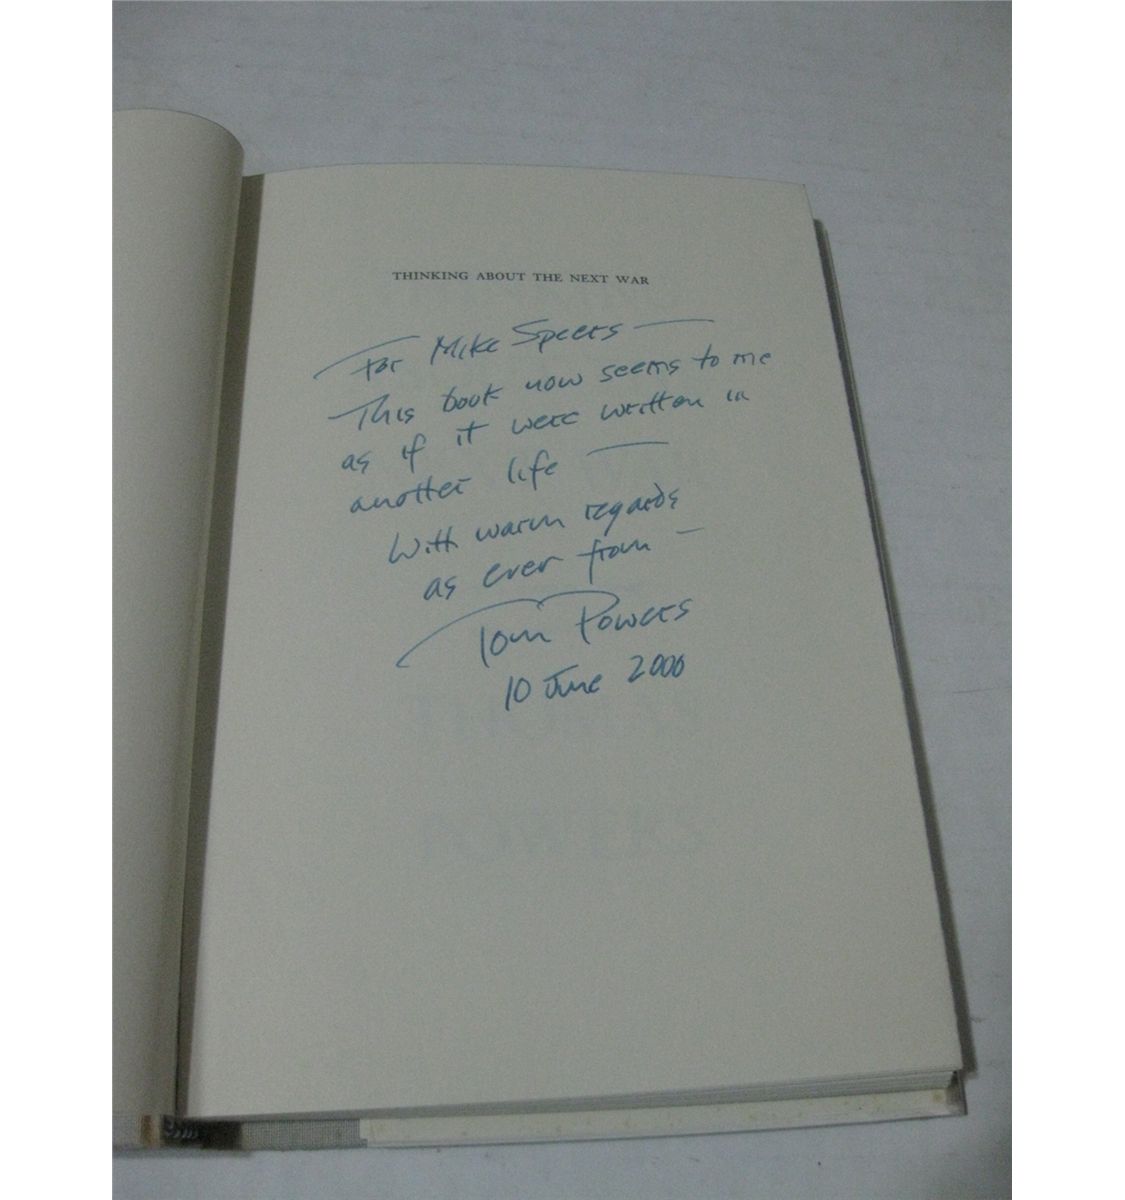 THINKING ABOUT THE NEXT WAR
For Mike Speers —
This book now seems to me
as if it were written in
another life —
With warm regards
as ever from —
Tom Powers
10 June 2000
THOMAS
POWERS